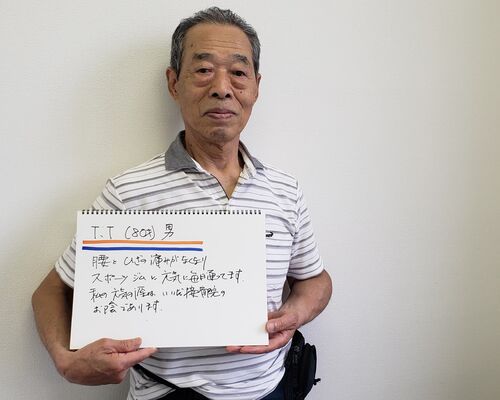 T.T (80才) 男
腰とひざの痛みがなくなり
スポーツジムに元気に毎日通ってます。
私の元気の源は、いいだ接骨院の
お陰であります。